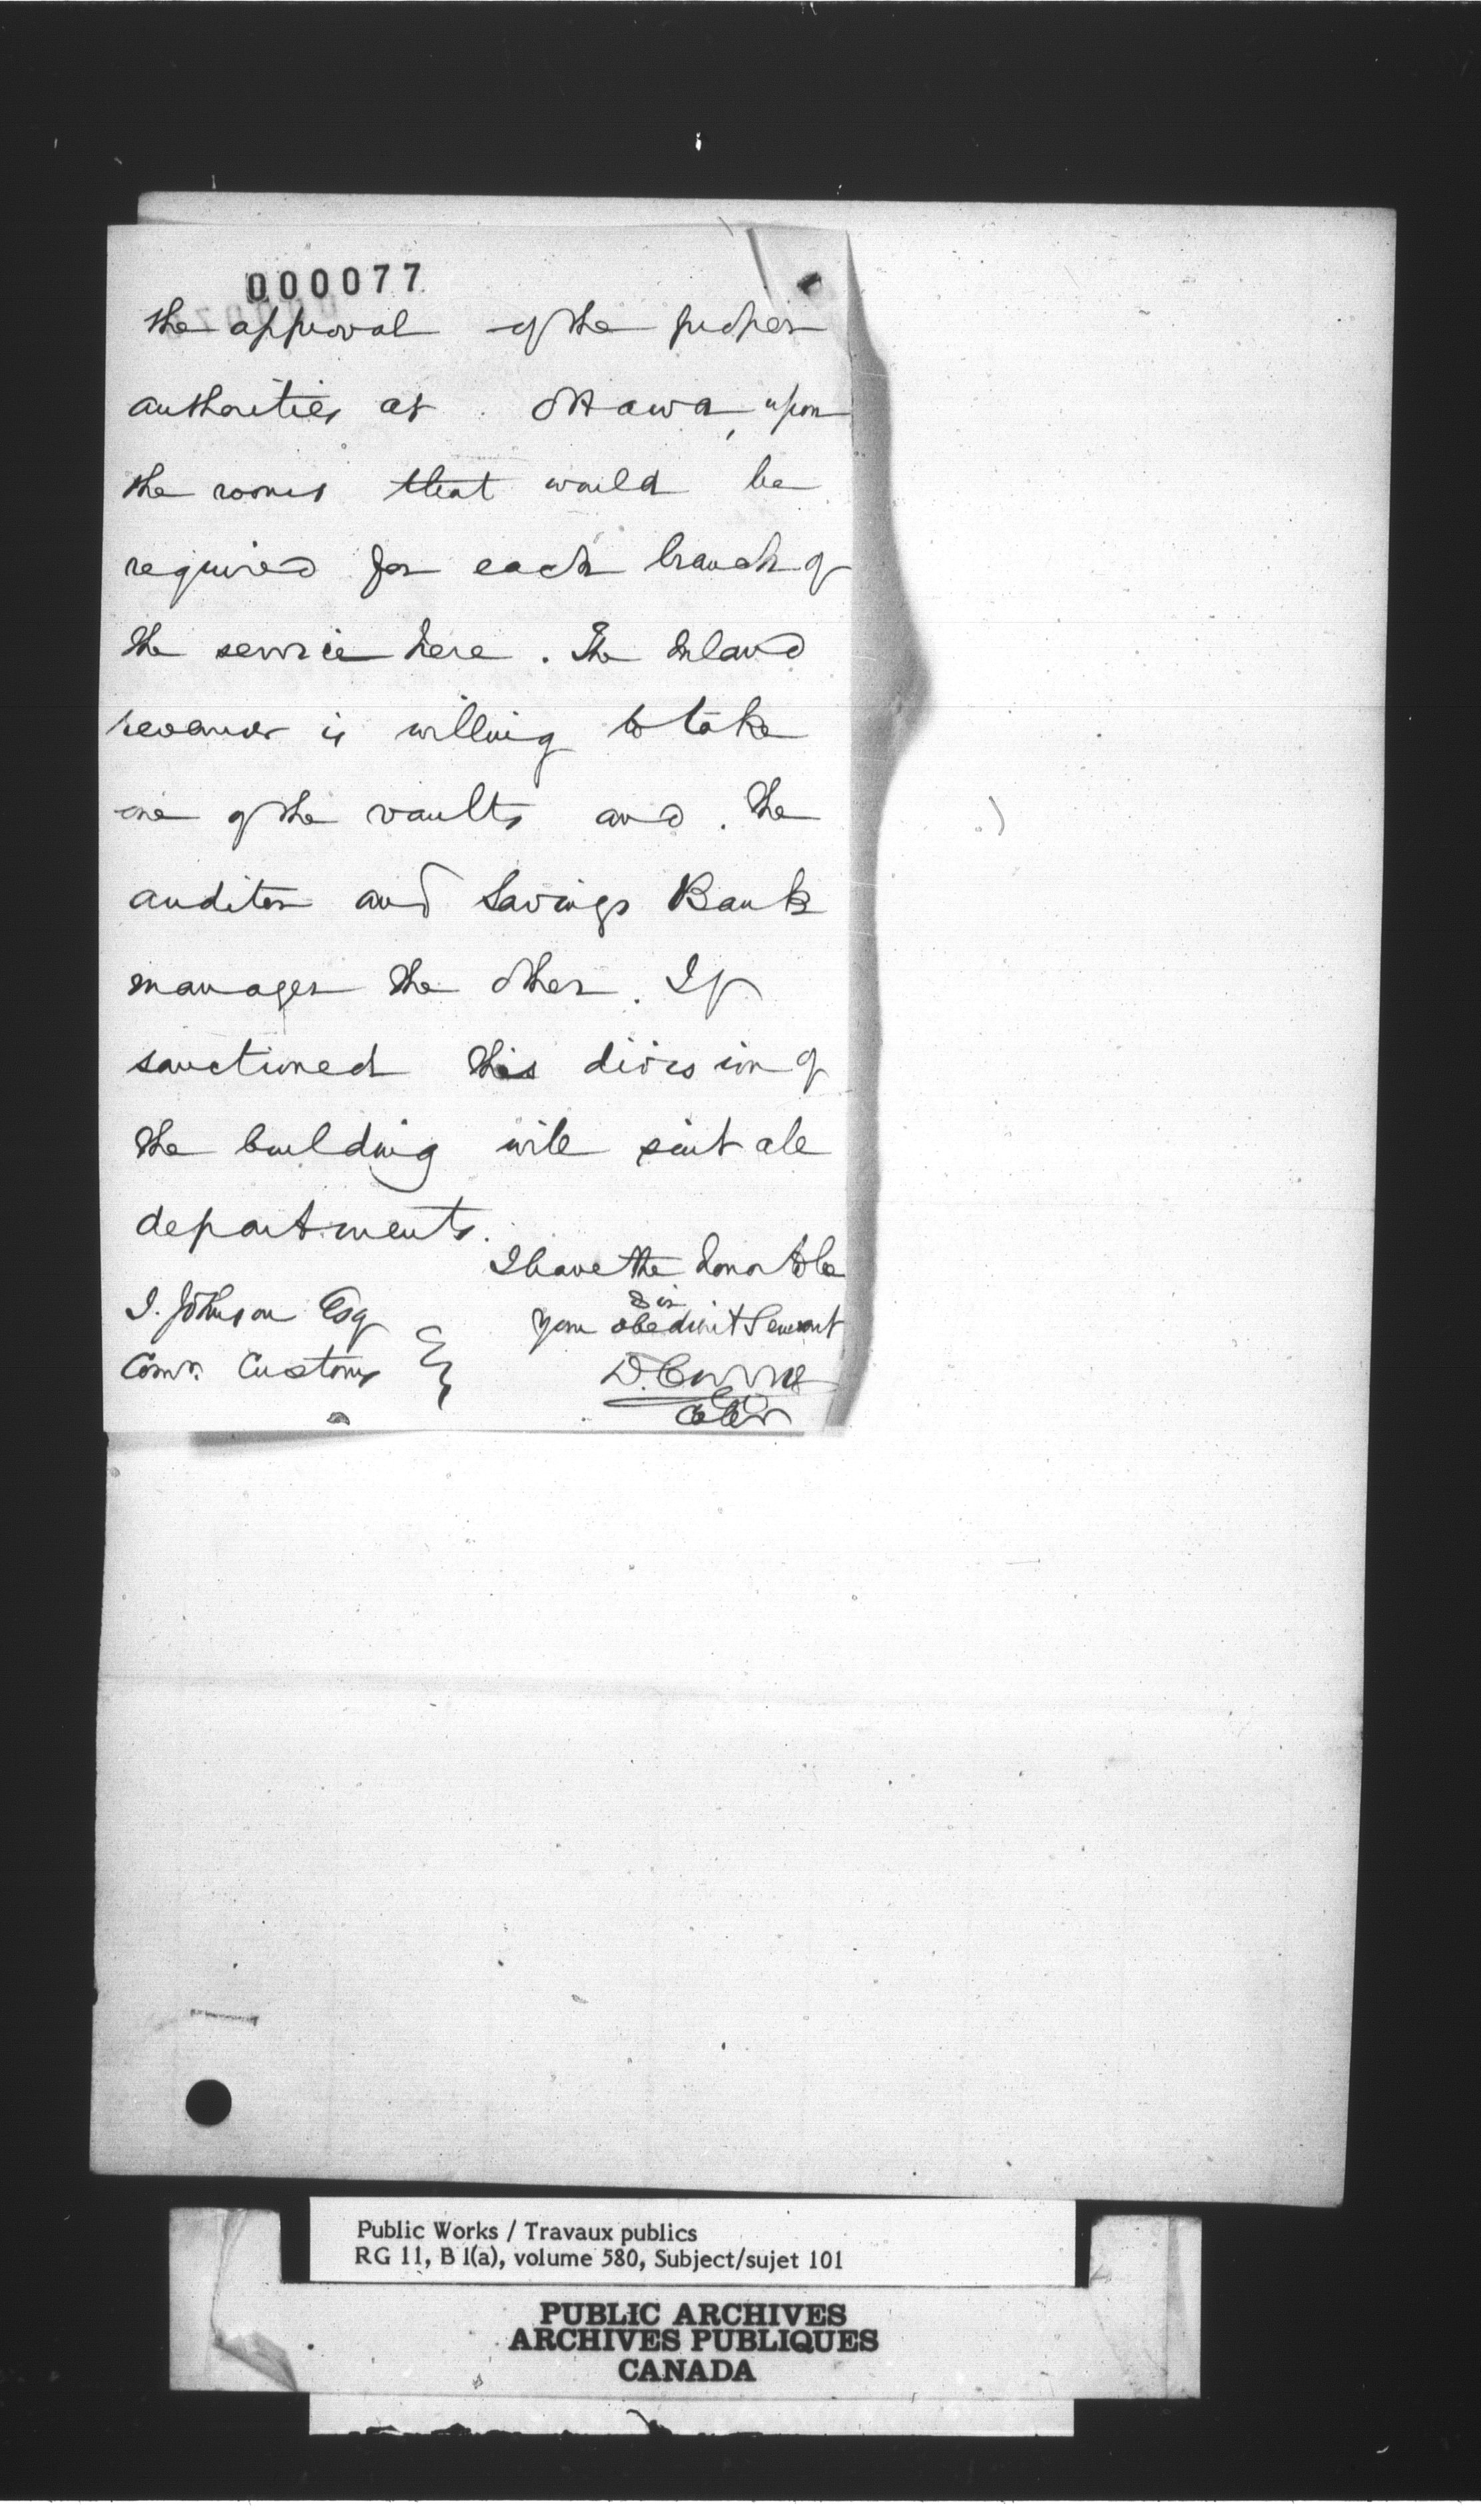 000077
the approval of the proper
authorities at Ottawa, upon
the rooms that would be
required for each branch of
the service here. The Inland
revenue is willing to take
one of the vaults and the
auditor and Savings Bank
manager the other. If
sanctioned this division of
the building will suit all
departments.
I have the honor to be
Sir
your obedient Servant
J. Johnson Esq
Comr. Customs
D.
Public Works / Travaux publics
RG 11, B 1(a), volume 580, Subject/sujet 101
PUBLIC ARCHIVES
ARCHIVES PUBLIQUES
CANADA